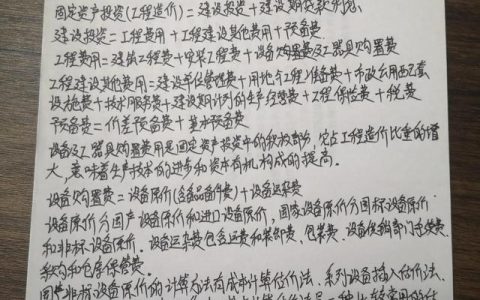 固定资产投资(工程造价)=建设投资+建设期贷款利息.
建设投资=工程费用+工程建设其他费用+预备费
工程费用=建筑工程费+安装工程费+设备购置费及工器具购置费
工程建设其他费用=建设单位管理费+用地与工程准备费+市政公用配套
设施费+技术服务费+建设期计列的生产经营费+工程保险费+税费
预备费=价差预备费+基本预备费
设备及工器具购置费用是固定资产投资中的积极部分,它占工程造价比重的增
大,意味着生产技术的进步和资本有机构成的提高。
设备购置费=设备原价(含备品备件费)+设备运杂费
设备原价分国产设备原价和进口设备原价,国产设备原价分国标设备原价
和非标设备原价、设备运杂费包含运费和装卸费、包装费、设备供销部门手续费、
采购和仓库保管费。
国产非标设备原价的计算方法有成本计算估价法、系列设备插入估价法、